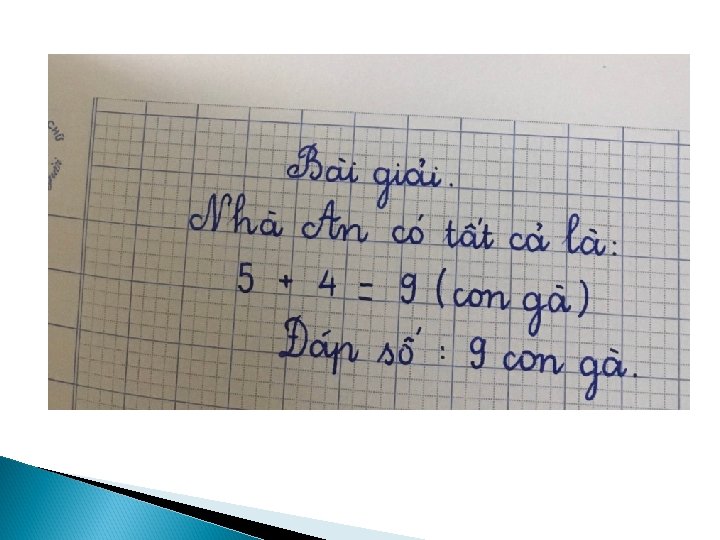 Bài giải.
Nhà An có tất cả là:
5 + 4 = 9 (con gà)
Đáp số : 9 con gà.